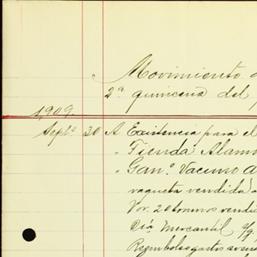 Movimiento d
2ª quincena del
1,909.
Septe. 30 A Existencia para el
" Tienda Alamo
" Ganº. Vacuno d
vaqueta vendida a
Vor. 20 tomos vendi
Dia. Mercantil
Reembolso gastos